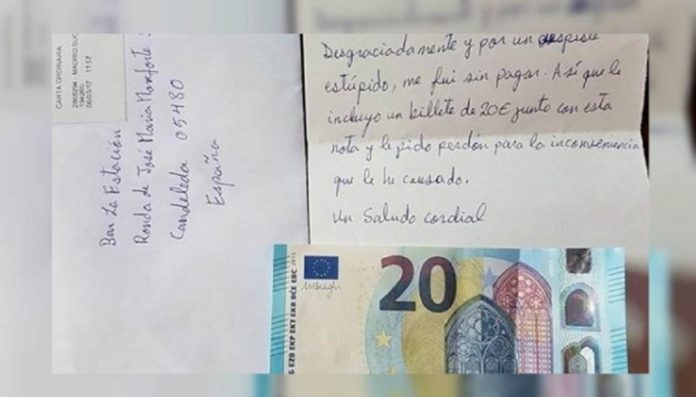 CARTA ORDINARIA
06/03/17 11:57
Bar La Estación
Ronda de José María Monforte
Candeleda 05480
España
Desgraciadamente y por un despiste
estúpido, me fui sin pagar. Así que le
incluyo un billete de 20€ junto con esta
nota y le pido perdón para la inconveniencia
que le he causado.
Un Saludo cordial
20
EZB EKP EKT EKB BCE EBC